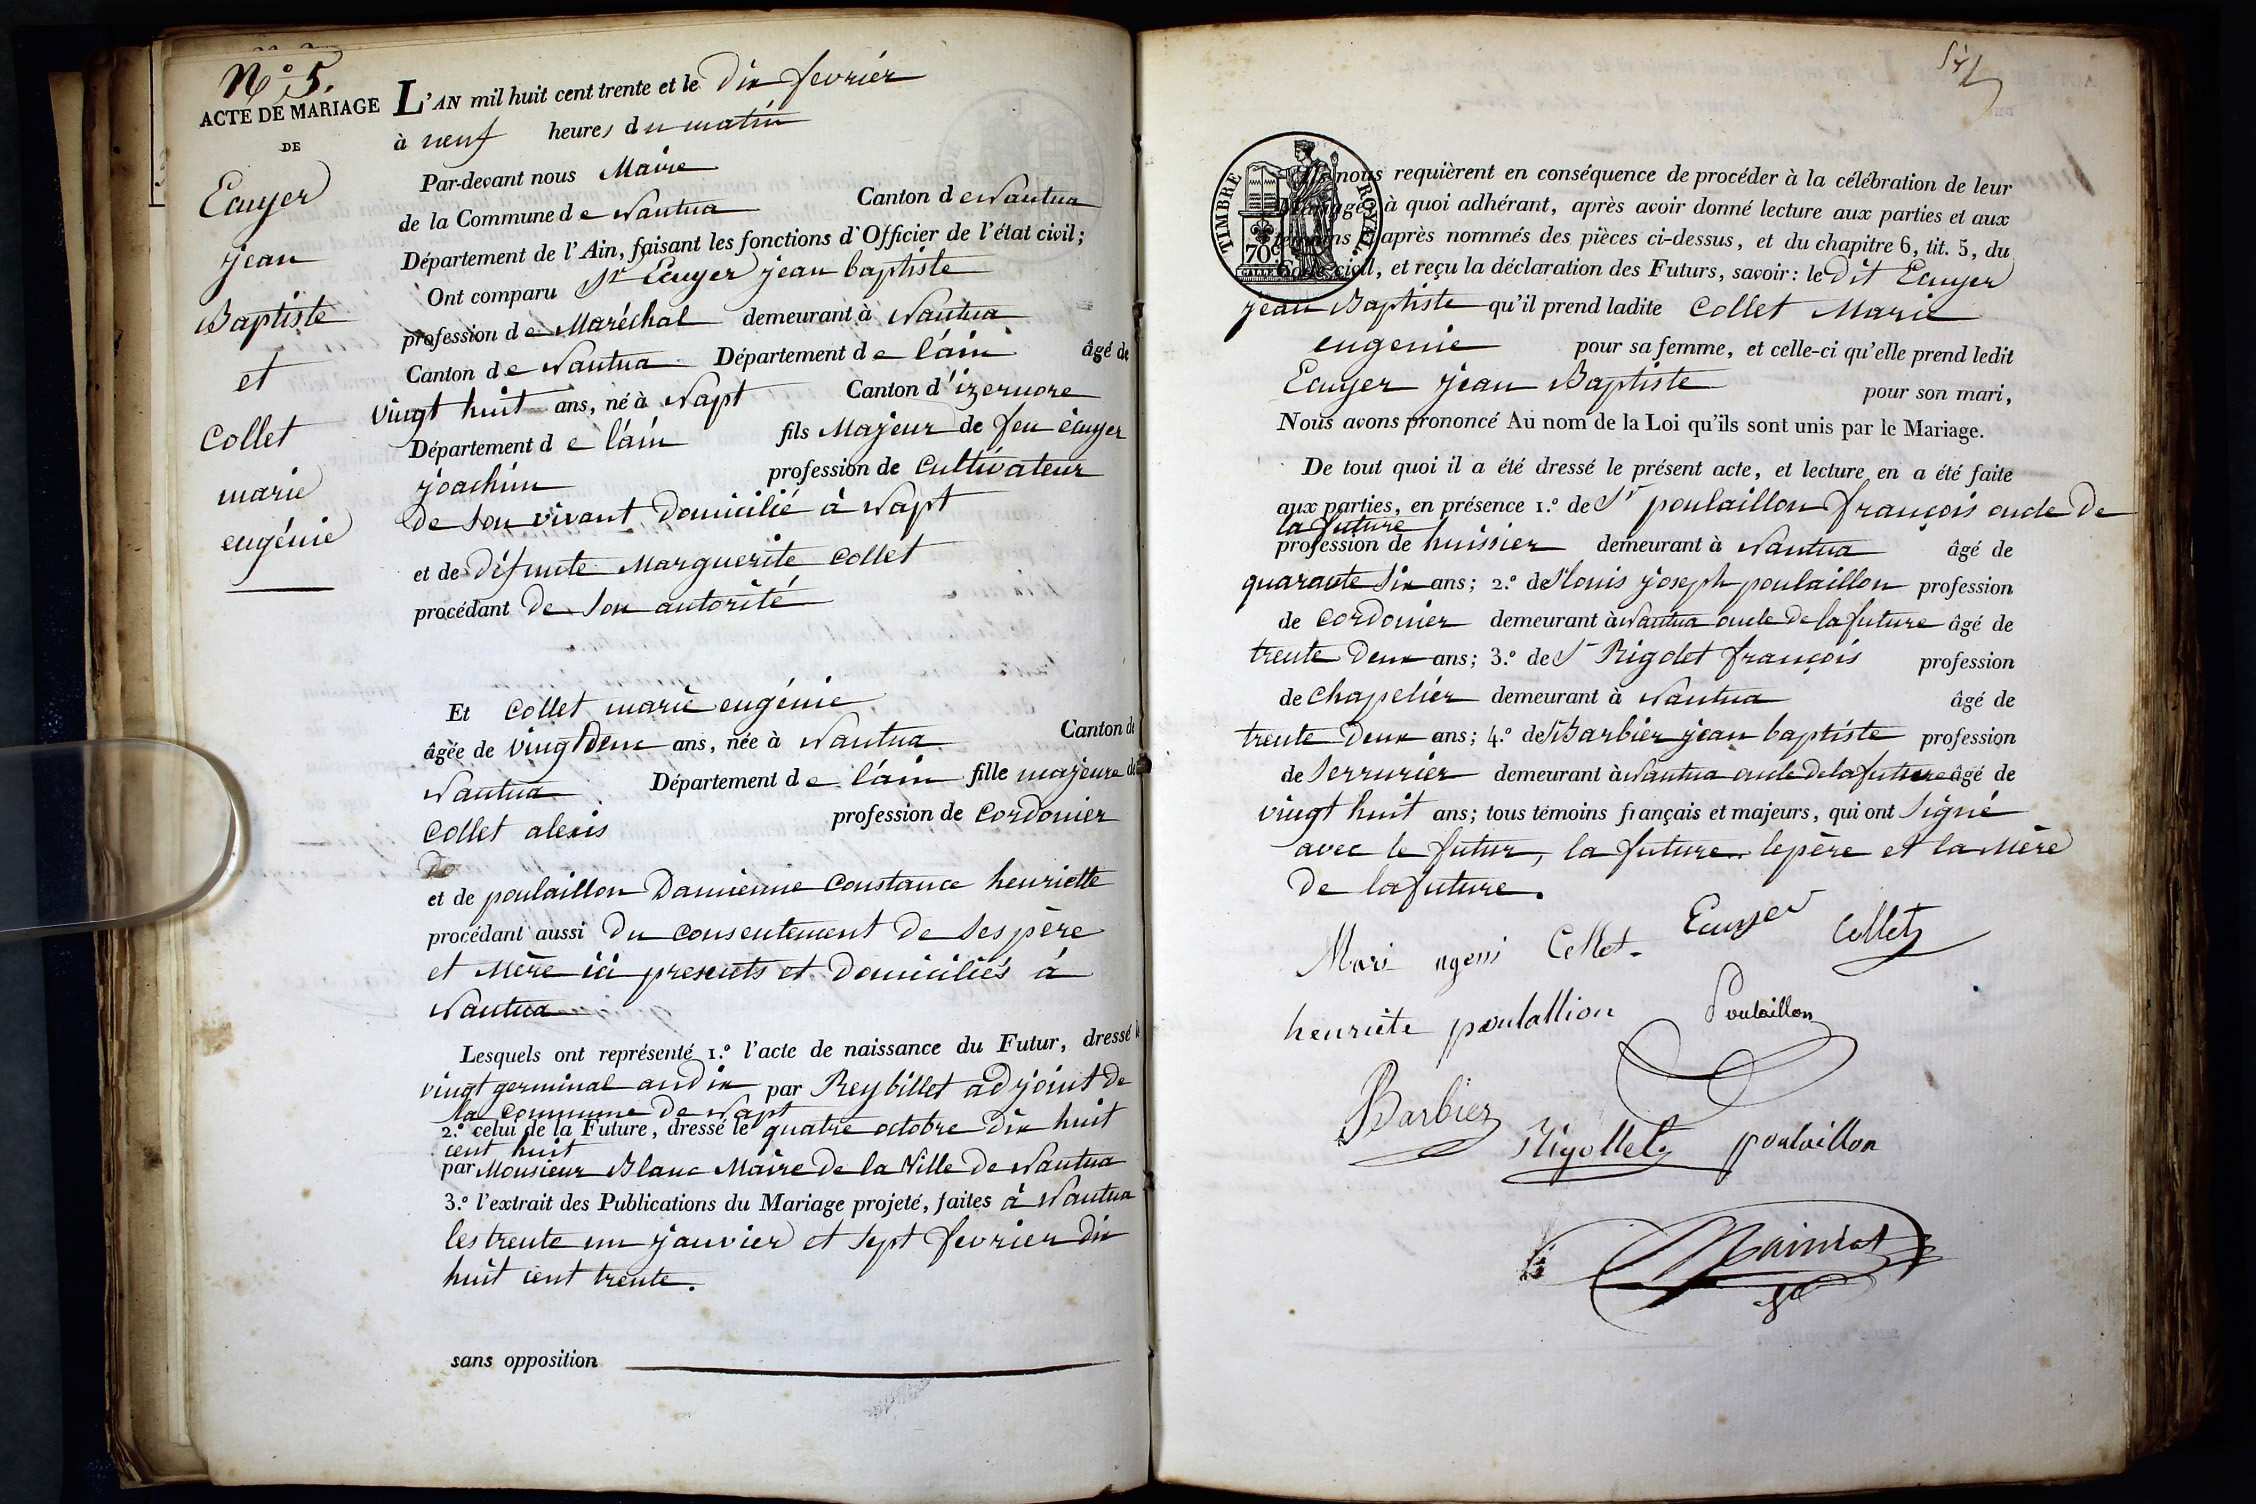 N.° 5.
ACTE DE MARIAGE
DE
Ecuyer
jean
Baptiste
et
Collet
marie
eugénie
L'AN mil huit cent trente et le dix fevrier
à neuf heures du matin
Par-devant nous Maire
de la Commune de Nantua Canton de Nantua
Département de l'Ain, faisant les fonctions d'Officier de l'état civil;
Ont comparu Sr Ecuyer jean baptiste
profession de Maréchal demeurant à Nantua
Canton de Nantua Département de l'ain âgé de
vingt huit ans, né à Napt Canton d'izernore
Département de l'ain fils Majeur de feu écuyer
joachim profession de Cultivateur
de son vivant domicilié à Napt
et de défunte Marguerite Collet
procédant de son autorité
Et Collet marie eugénie
âgée de vingt deux ans, née à Nantua Canton de
Nantua Département de l'ain fille majeure de
Collet alexis profession de Cordonier
et de poulaillon Damienne Constance henriette
procédant aussi du consentement de ses père
et Mère ici presents et domiciliés à
Nantua
Lesquels ont représenté 1.° l'acte de naissance du Futur, dressé le
vingt germinal an dix par Reybillet adjoint de
la commune de Napt
2.° celui de la Future, dressé le quatre octobre dix huit
cent huit
par Monsieur Blanc Maire de la Ville de Nantua
3.° l'extrait des Publications du Mariage projeté, faites à Nantua
les trente un janvier et sept fevrier dix
huit cent trente.
sans opposition
six
TIMBRE ROYAL
70c
nous requièrent en conséquence de procéder à la célébration de leur
Mariage, à quoi adhérant, après avoir donné lecture aux parties et aux
témoins ci-après nommés des pièces ci-dessus, et du chapitre 6, tit. 5, du
Code civil, et reçu la déclaration des Futurs, savoir: le dit Ecuyer
jean Baptiste qu'il prend ladite Collet Marie
eugenie pour sa femme, et celle-ci qu'elle prend ledit
Ecuyer jean Baptiste pour son mari,
Nous avons prononcé Au nom de la Loi qu'ils sont unis par le Mariage.
De tout quoi il a été dressé le présent acte, et lecture en a été faite
aux parties, en présence 1.° de Sr poulaillon françois oncle de
la future
profession de huissier demeurant à Nantua âgé de
quarante six ans; 2.° de Sr louis joseph poulaillon profession
de Cordonier demeurant à Nantua oncle de la future âgé de
trente deux ans; 3.° de Sr Rigolet françois profession
de Chapelier demeurant à Nantua âgé de
trente deux ans; 4.° de Sr Barbier jean baptiste profession
de Serrurier demeurant à Nantua oncle de la future âgé de
vingt huit ans; tous témoins français et majeurs, qui ont signé
avec le futur, la future le père et la Mère
de la future.
Mari ugeni Collet. Ecuyer Collet
henriete poulallion Poulaillon
Barbier Rigollet poulaillon